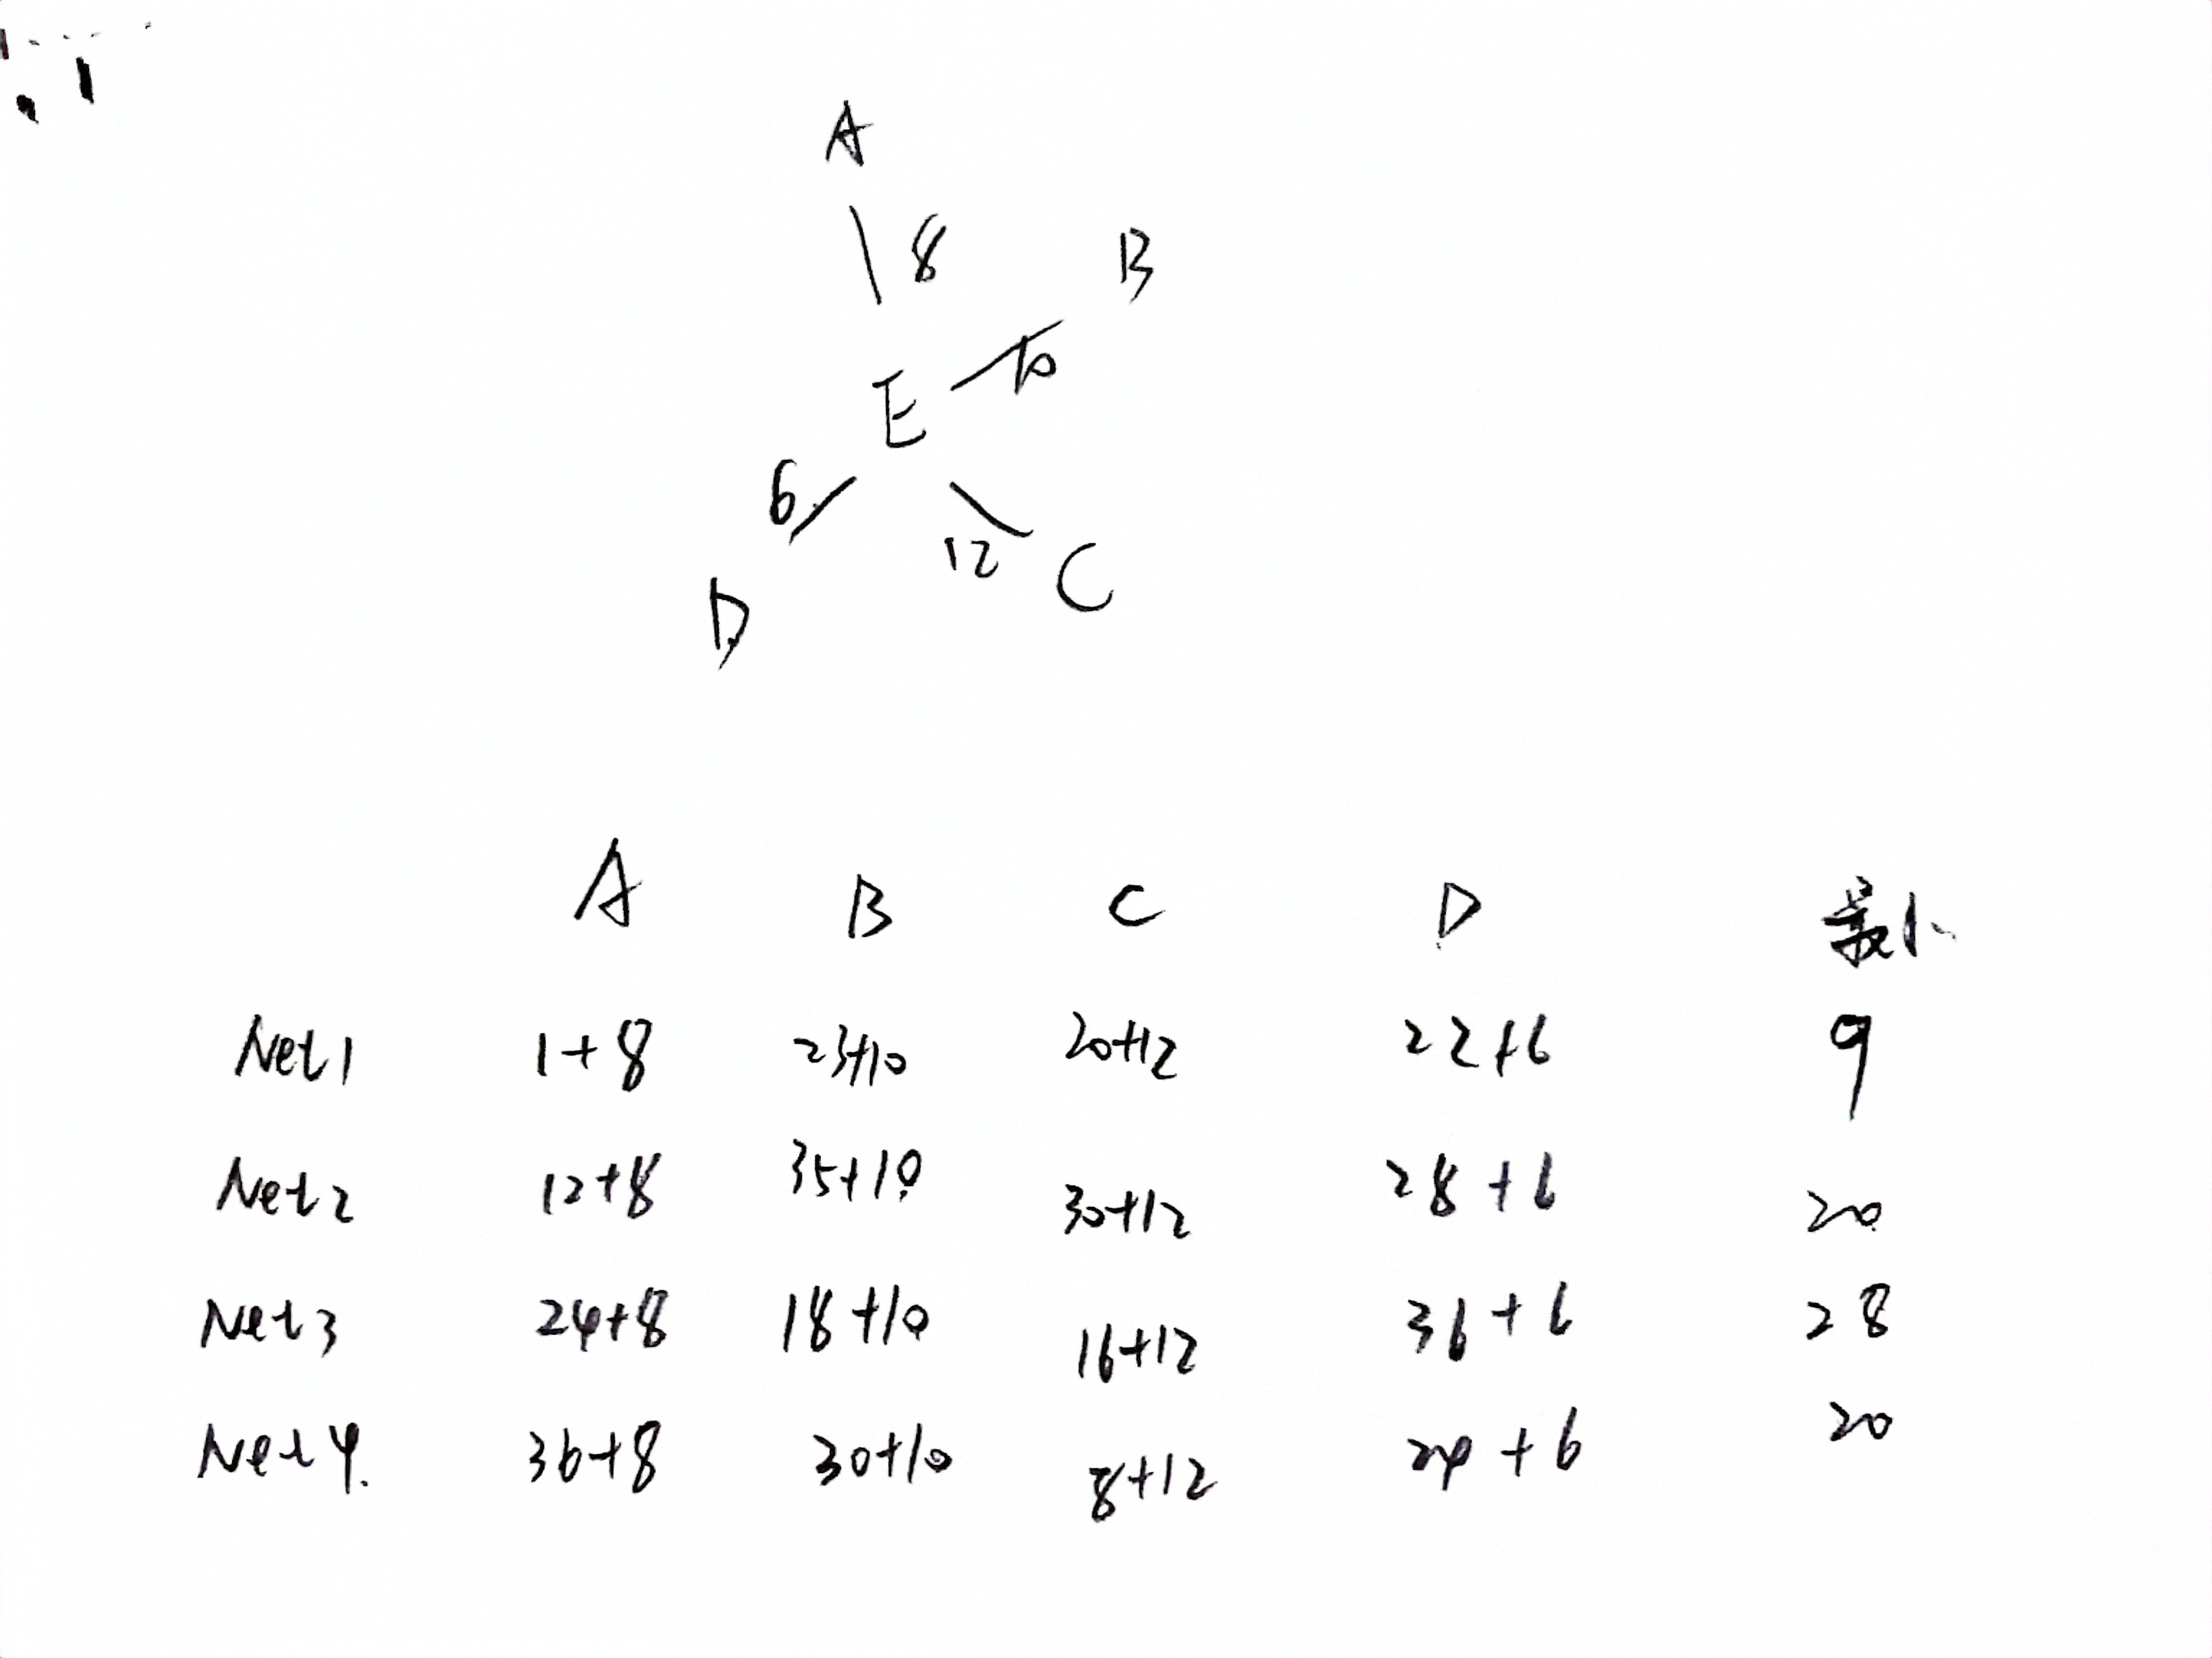 A
8 B
10
E
6
12 C
D
A B C D 最小
Net1 1+8 23+10 20+12 22+6 9
Net2 12+8 35+10 30+12 28+6 20
Net3 24+8 18+10 16+12 36+6 28
Net4. 36+8 30+10 8+12 24+6 20